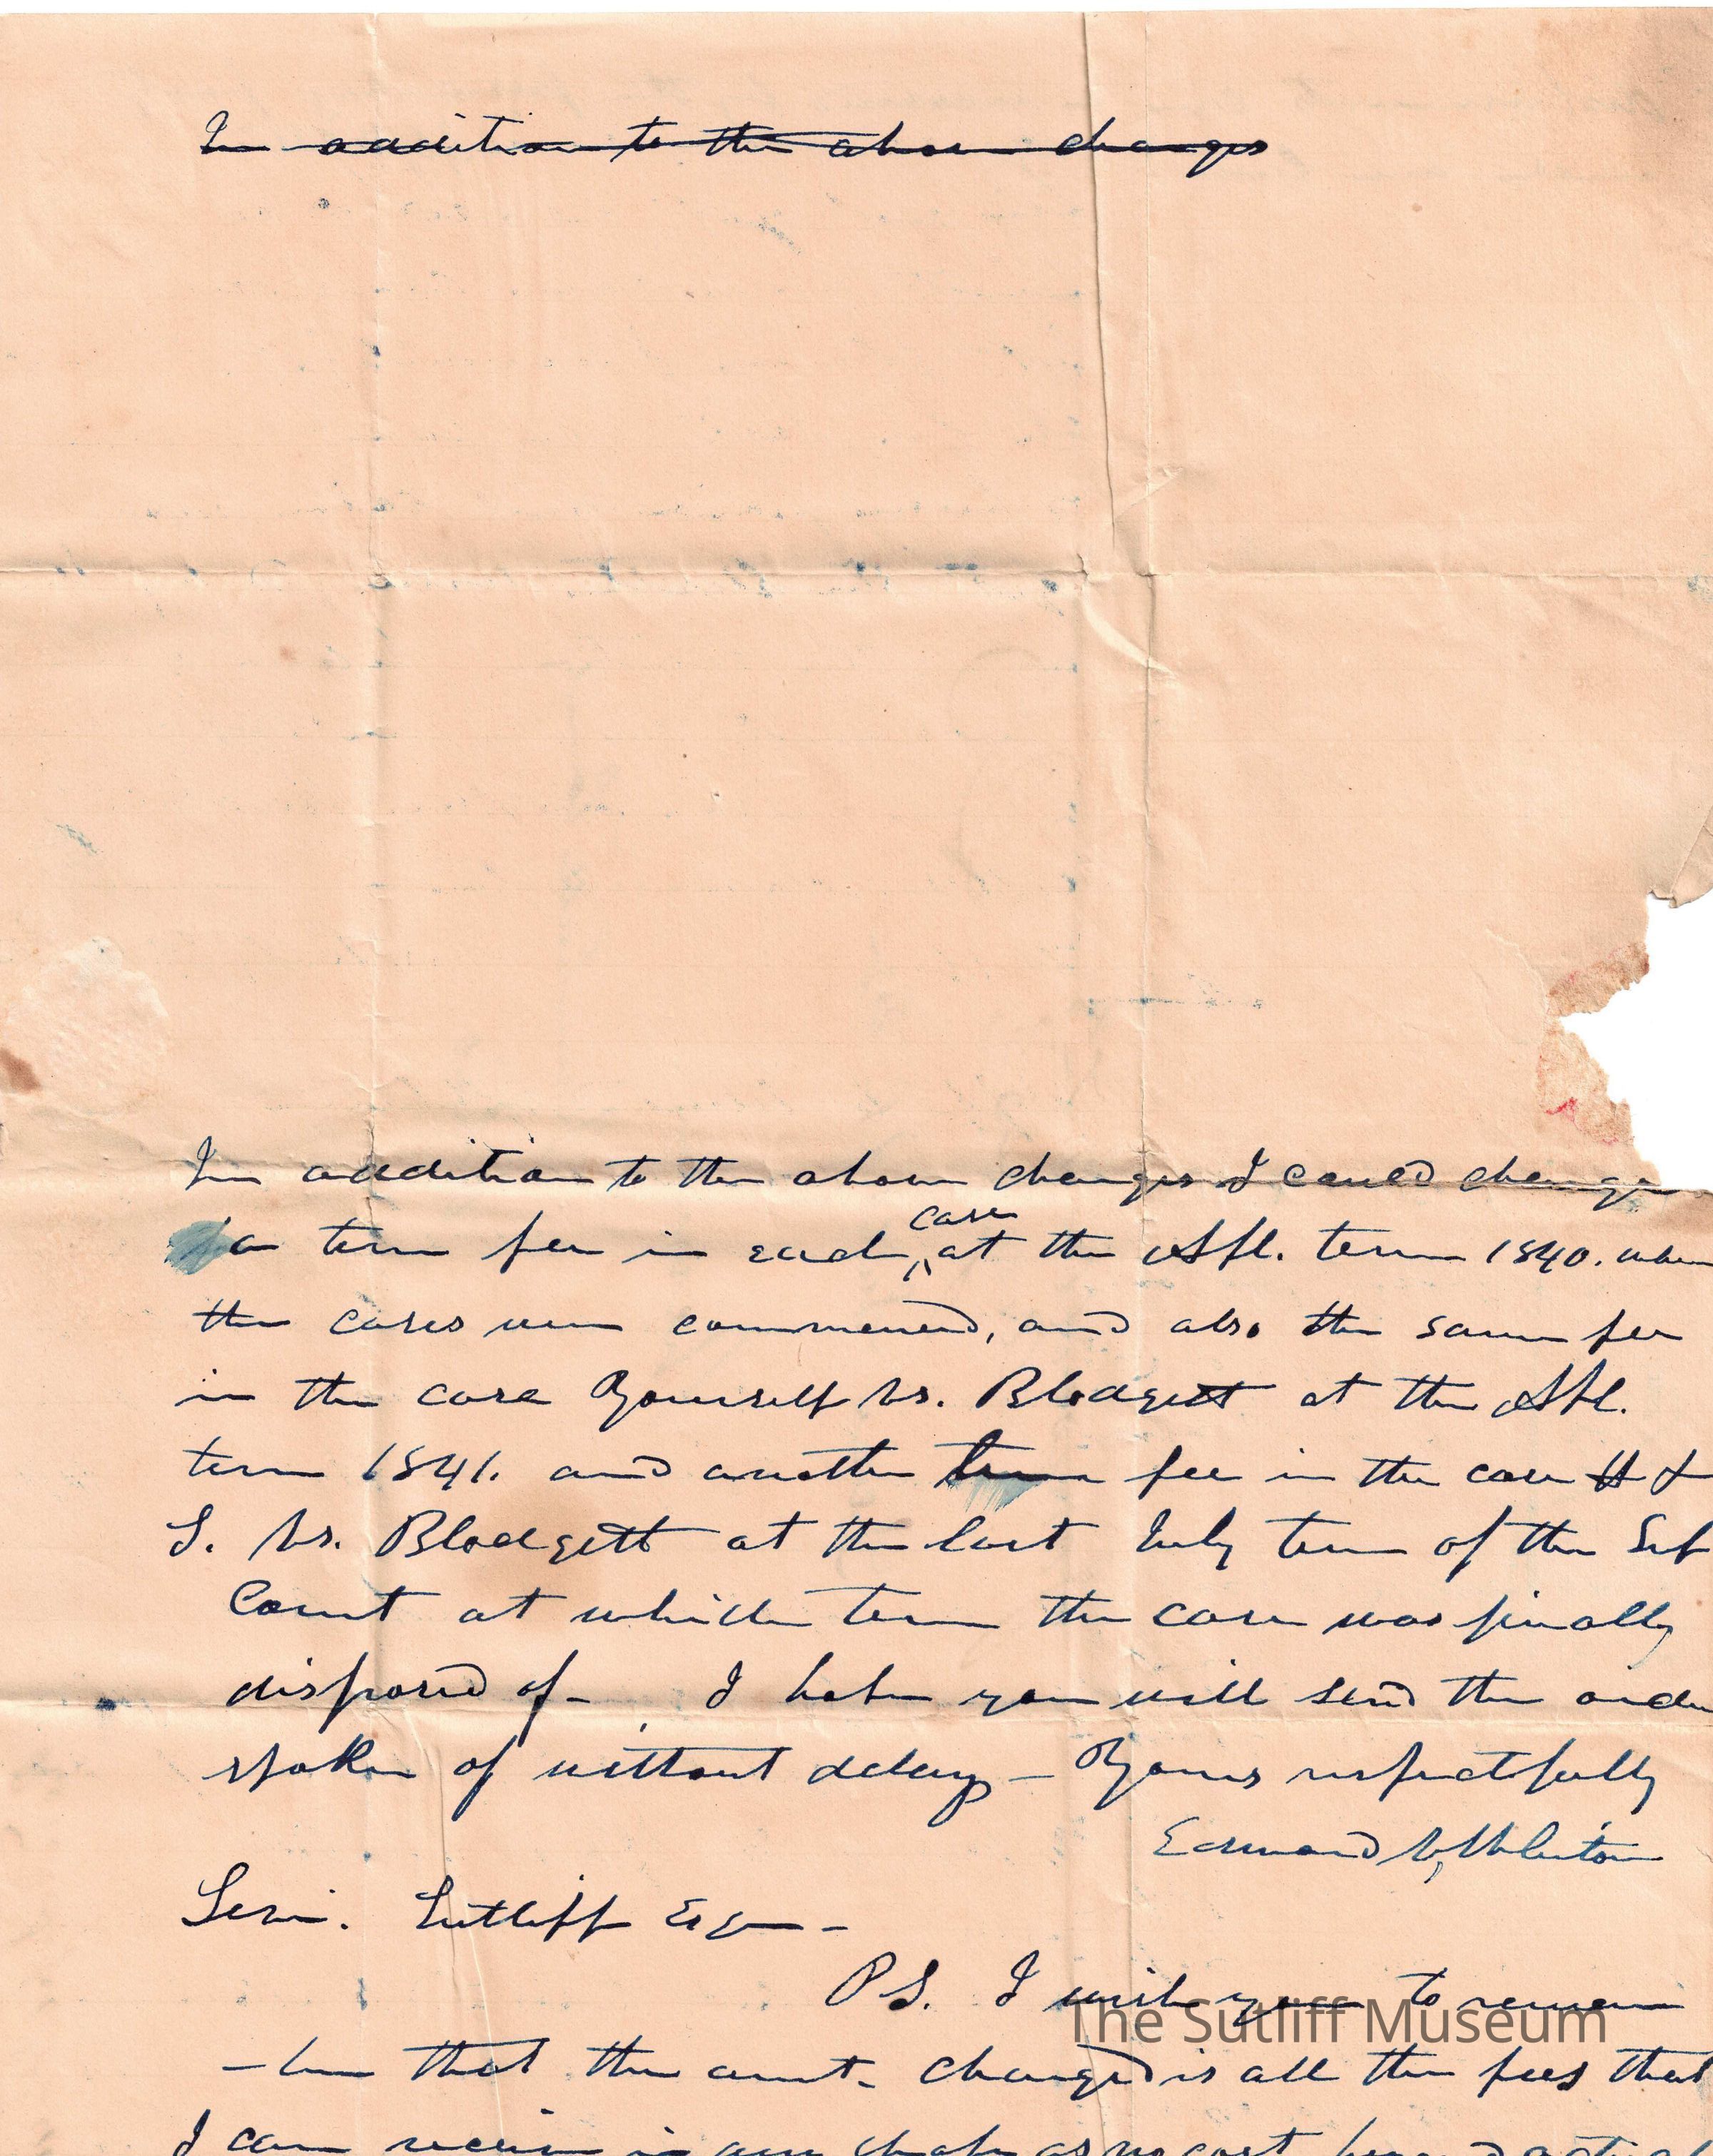 In addition to the above charges
In addition to the above charges I could charge
a term fee in each case at the Spl. term 1840. when
the cases were commenced, and also the same fee
in the case Yourself vs. Blodgett at the Spl.
term 1841. and another term fee in the case H &
S. vs. Blodgett at the last July term of the Sup
Court at which term the case was finally
disposed of - I hope you will send the order
spoken of without delay - Yours respectfully
Edward
Levi. Sutliff Esqr -
PS. I wish you to remem
-ber that the amt. charged is all the fees that
I can receive in any shape as no cost
The Sutliff Museum